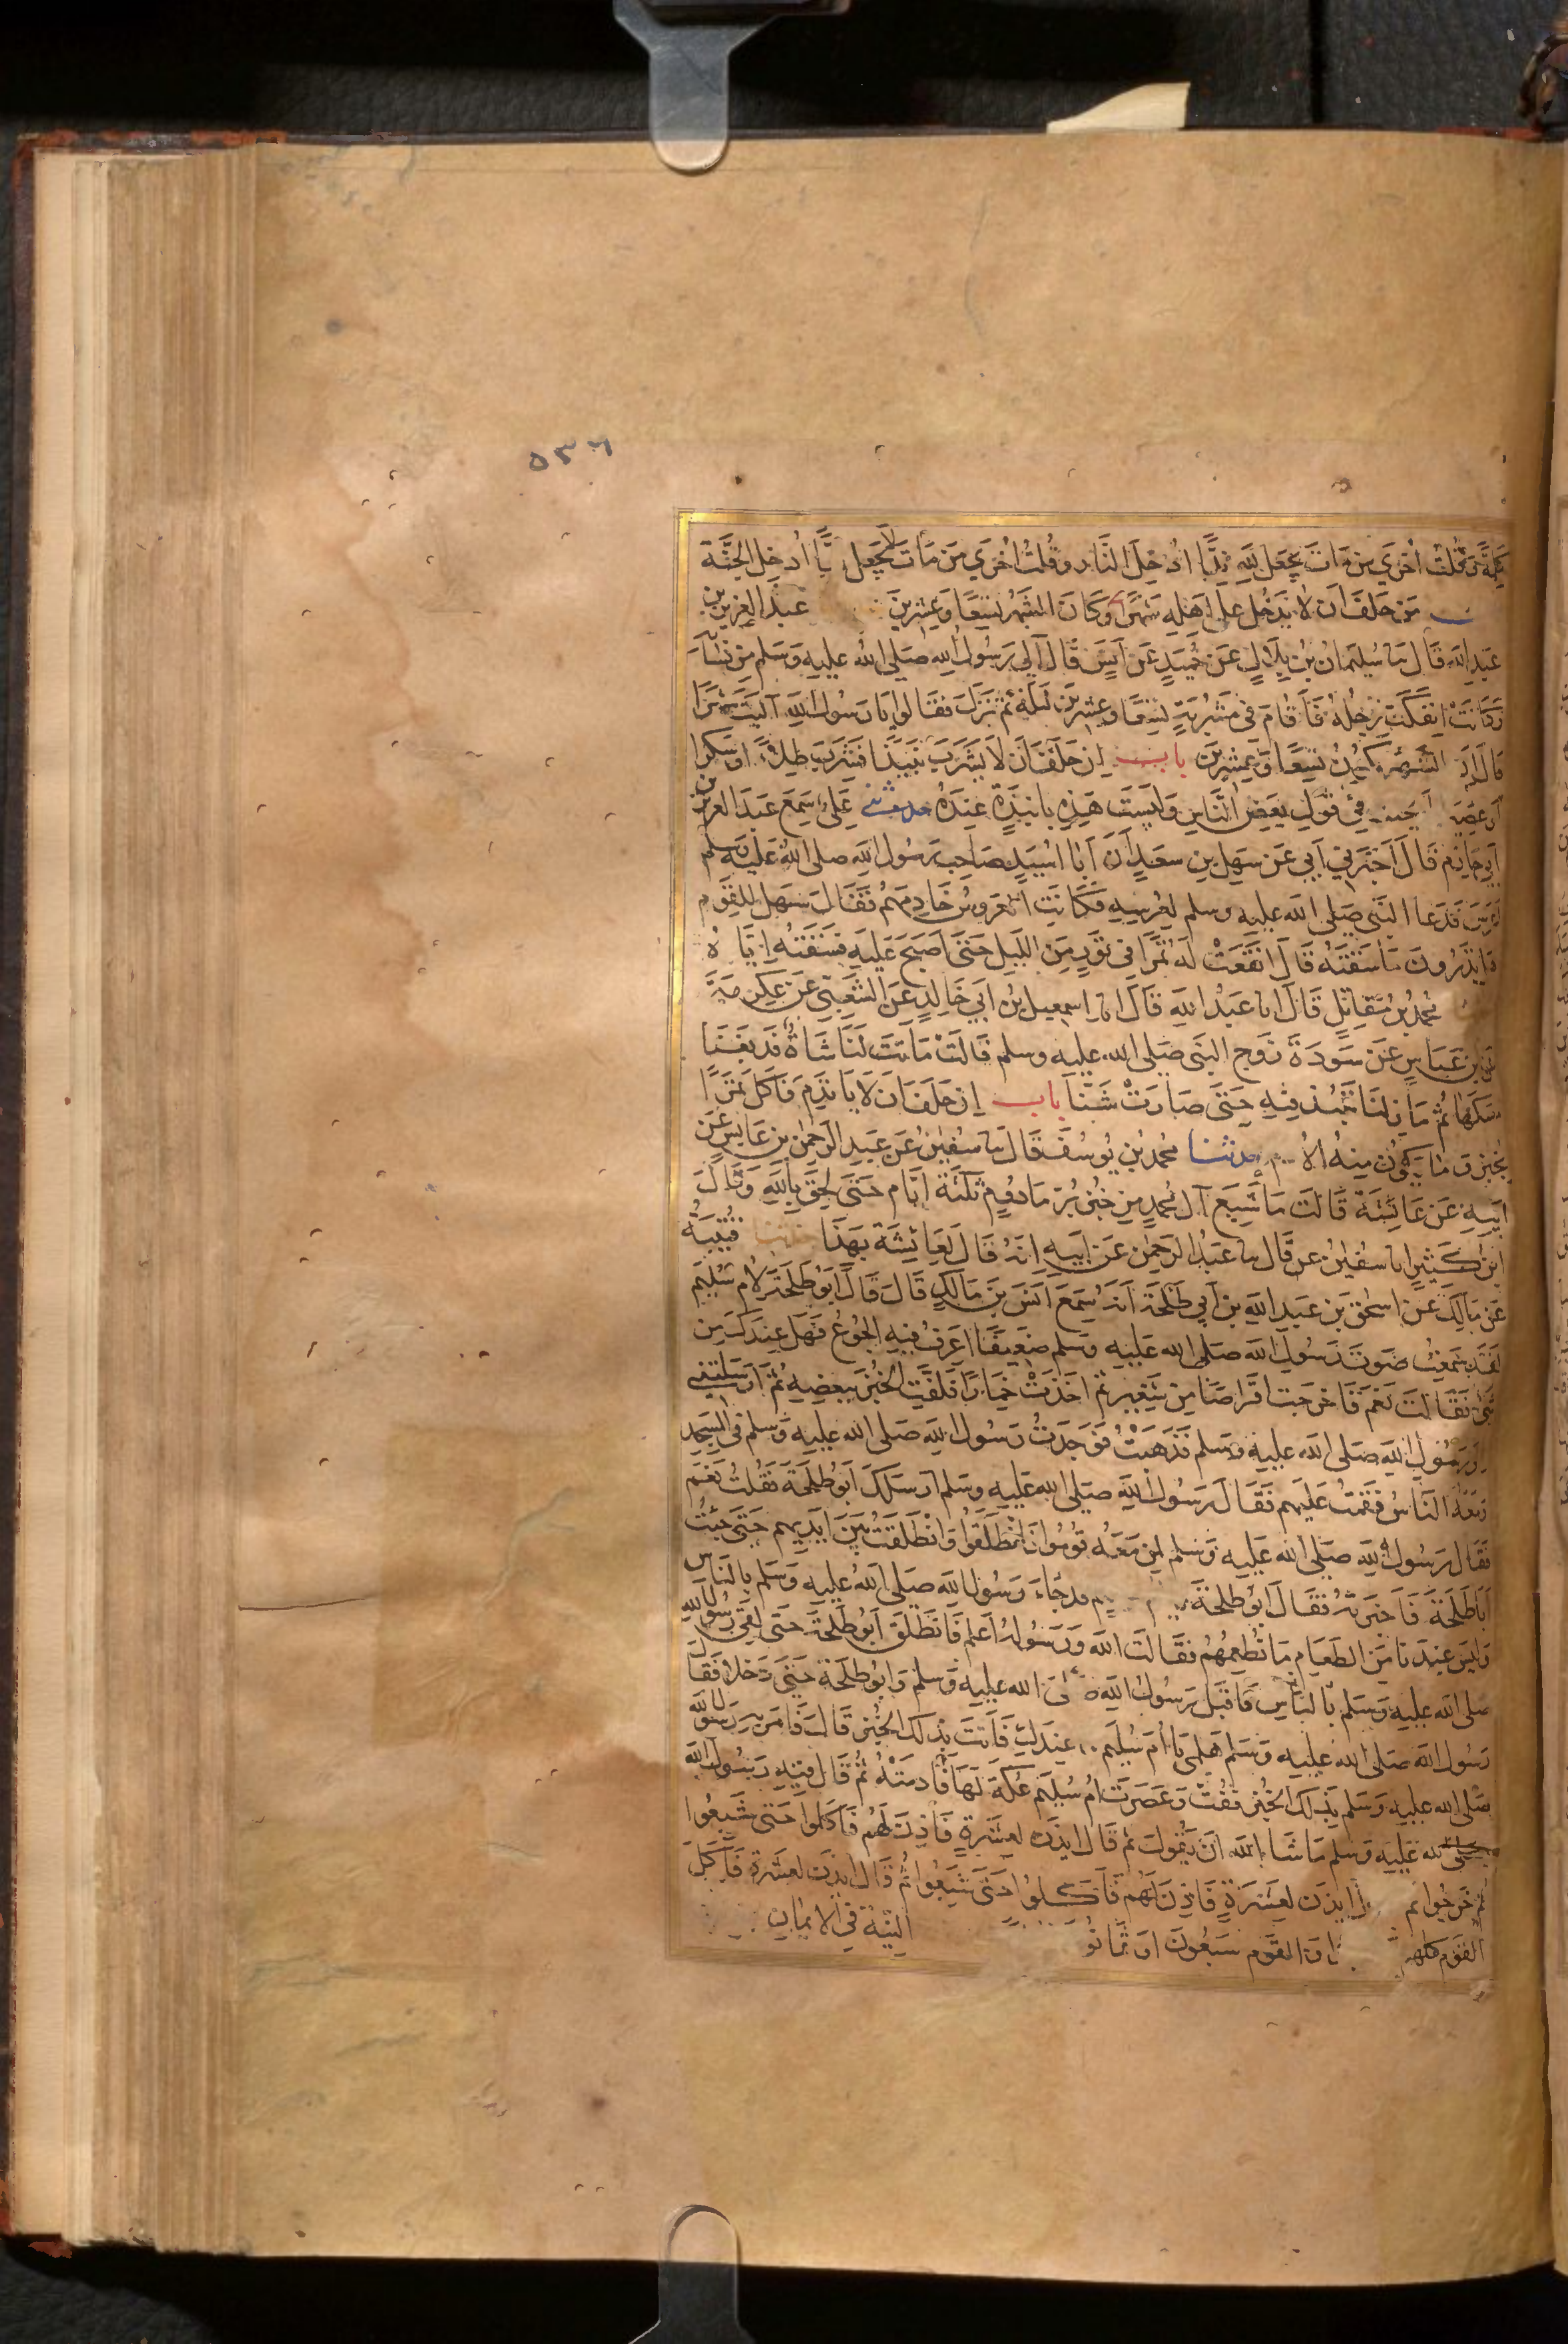 ٥٣٦
كلمة وقلت أخرى من مات يجعل لله ندا ادخل النار وقلت أخرى من مات لا يجعل ندا أدخل الجنة
من حلف ان لا يدخل على اهله شهرا وكان الشهر تسعا وعشرين عبد العزيز بن
عبد الله قال سا سليمان بن بلال عن حميد عن انس قال آلى رسول الله صلى الله عليه وسلم من نسآئه
وكانت انفكت رجله فاقام في مشربة تسعا وعشرين ليلة ثم نزل فقالوا يا رسول الله آليت شهرا
قال ان الشهر يكون تسعا وعشرين باب ان حلف ان لا يشرب نبيذا فشرب طلاء او سكرا
او عصيرا يحنث في قول بعض الناس وليست هذه بانبذة عنده حدثني علي سمع عبد العزيز بن
أبي حازم قال أخبرني أبي عن سهل بن سعد أن أبا أسيد صاحب رسول الله صلى الله عليه وسلم
اعرس فدعا النبي صلى الله عليه وسلم لعرسه فكانت العروس خادمهم فقال سهل للقوم
تدرون ما سقته قال انقعت له تمرا في تور من الليل حتى اصبح عليه فسقته اياه
محمد بن مقاتل قال انا عبد الله قال انا اسمعيل بن ابي خالد عن الشعبي عن عكرمة
عن ابن عباس عن سودة زوج النبي صلى الله عليه وسلم قالت ماتت لنا شاة فدبغنا
مسكها ثم مازلنا ننبذ فيه حتى صارت شنا باب ان حلف ان لا ياتدم فاكل تمرا
بخبز وما يكون منه الأدم حدثنا محمد بن يوسف قال سا سفين عن عبد الرحمن بن عابس عن
ابيه عن عائشة قالت ما شبع آل محمد من خبز بر مادوم ثلثة ايام حتى لحق بالله وقال
ابن كثير انا سفين عن قال سا عبد الرحمن عن ابيه انه قال لعائشة بهذا حدثنا قتيبة
عن مالك عن اسحق بن عبد الله بن أبي طلحة انه سمع انس بن مالك قال قال أبو طلحة لام سليم
لقد سمعت صوت رسول الله صلى الله عليه وسلم ضعيفا اعرف فيه الجوع فهل عندك من
شئ فقالت نعم فاخرجت اقراصا من شعير ثم اخذت خمارا فلفت الخبز ببعضه ثم ارسلتني
الى رسول الله صلى الله عليه وسلم فذهبت فوجدت رسول الله صلى الله عليه وسلم في المسجد
ومعه الناس فقمت عليهم فقال رسول الله صلى الله عليه وسلم ارسلك أبو طلحة فقلت نعم
فقال رسول الله صلى الله عليه وسلم لمن معه قوموا فانطلقوا وانطلقت بين ايديهم حتى جئت
أبا طلحة فاخبرته فقال أبو طلحة يا ام سليم قد جاء رسول الله صلى الله عليه وسلم بالناس
وليس عندنا من الطعام ما نطعمهم فقالت الله ورسوله اعلم فانطلق أبو طلحة حتى لقي رسول الله
صلى الله عليه وسلم بالناس فاقبل رسول الله صلى الله عليه وسلم وابو طلحة حتى دخلا فقال
رسول الله صلى الله عليه وسلم هلمي يا أم سليم ما عندك فأتت بذلك الخبز قال فامر به رسول الله
صلى الله عليه وسلم بذلك الخبز ففت وعصرت ام سليم عكة لها فأدمته ثم قال فيه رسول الله
صلى الله عليه وسلم ما شا الله ان يقول ثم قال ايذن لعشرة فأذن لهم فأكلوا حتى شبعوا
ثم خرجوا ثم قال ايذن لعشرة فاذن لهم فأكلوا حتى شبعوا ثم قال ايذن لعشرة فأكل
القوم كلهم والقوم سبعون او ثمانو النية في الايمان